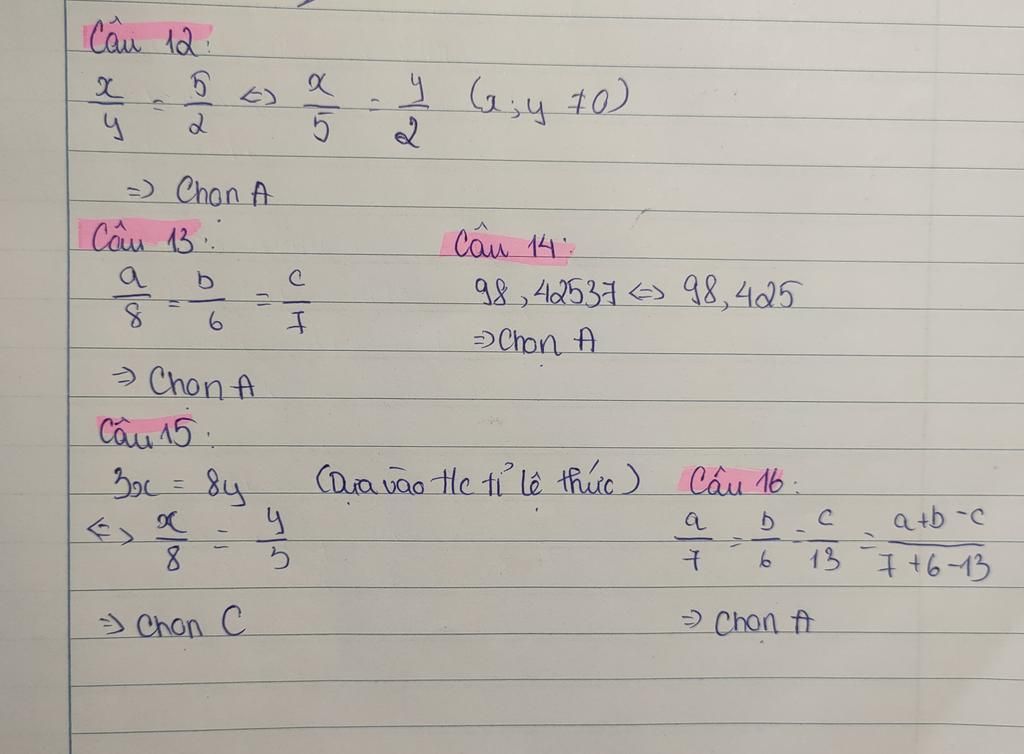 Câu 12:
x/y = 5/2 <=> x/5 = y/2 (x; y ≠ 0)
=> Chọn A
Câu 13:
a/8 = b/6 = c/7
=> Chọn A
Câu 14:
98,42537 <=> 98,425
=> Chọn A
Câu 15:
3x = 8y (Dựa vào t/c tỉ lệ thức)
<=> x/8 = y/3
=> Chọn C
Câu 16:
a/7 = b/6 = c/13 = (a+b-c)/(7+6-13)
=> Chọn A